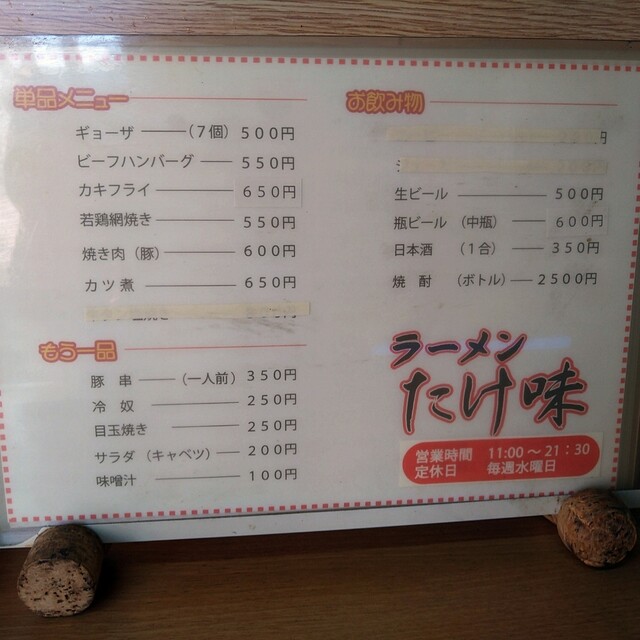 単品メニュー
ギョーザ ―――（７個） ５００円
ビーフハンバーグ ―― ５５０円
カキフライ ――――― ６５０円
若鶏網焼き ――――― ５５０円
焼き肉（豚）―――― ６００円
カツ煮 ―――――― ６５０円
もう一品
豚 串 ――― （一人前） ３５０円
冷 奴 ―――――― ２５０円
目玉焼き ――――― ２５０円
サラダ （キャベツ） ―― ２００円
味噌汁 ――――― １００円
お飲み物
円
生ビール ――――― ５００円
瓶ビール （中瓶） ―― ６００円
日本酒 （１合） ―― ３５０円
焼 酎 （ボトル） ― ２５００円
ラーメン
たけ味
営業時間 11:00 ～ 21：30
定休日 毎週水曜日